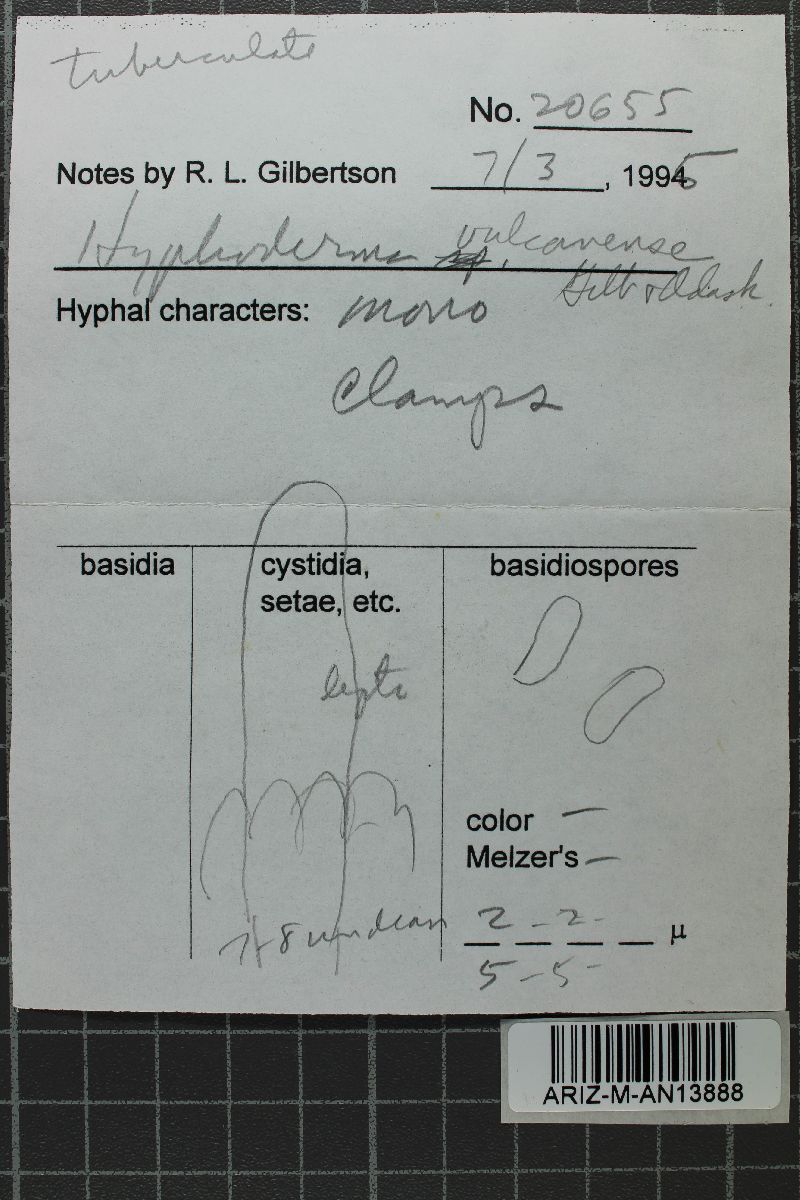 tuberculate
No. 20655
Notes by R. L. Gilbertson 7/3, 1995
Hyphoderma sp. vulcanense
Gilb & Adask.
Hyphal characters: mono
Clamps
basidia
cystidia,
setae, etc.
basidiospores
lepto
color —
Melzer's —
7-8 um diam
2 - 2- μ
5 - 5-
ARIZ-M-AN13888